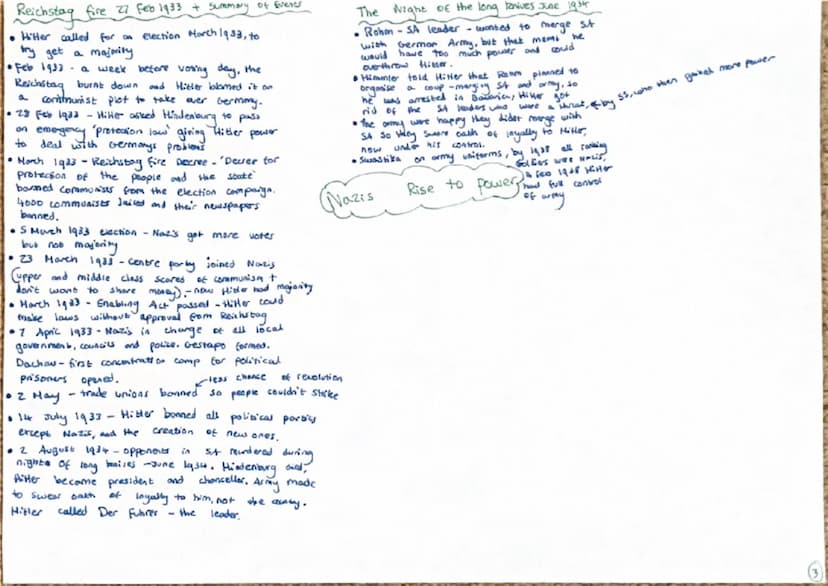 Reichstag fire 27 Feb 1933 + Summary of Events
• Hitler called for an election March 1933, to
try get a majority
• Feb 1933 - a week before voting day, the
Reichstag burnt down and Hitler blamed it on
a communist plot to take over Germany.
• 28 Feb 1933 - Hitler asked Hindenburg to pass
an emergency 'protection law' giving Hitler power
to deal with Germanys problems
• March 1933 - Reichstag Fire Decree - 'Decree for
protection of the people and the state'
banned communists from the election campaign.
4000 communists jailed and their newspapers
banned.
• 5 March 1933 election - Nazis got more votes
but not majority
• 23 March 1933 - Centre party joined Nazis
(upper and middle class scared of communism +
don't want to share money) - now Hitler had majority
• March 1933 - Enabling Act passed - Hitler could
make laws without approval from Reichstag
• 7 April 1933 - Nazis in charge of all local
government, councils and police. Gestapo formed.
Dachau - first concentration camp for political
prisoners opened.
less chance of revolution
• 2 May - trade unions banned so people couldn't strike
• 14 July 1933 - Hitler banned all political parties
except Nazis, and the creation of new ones.
• 2 August 1934 - opponents in SA murdered during
nights of long knives - June 1934. Hindenburg died,
Hitler became president and chancellor. Army made
to swear oath of loyalty to him, not the country.
Hitler called Der Fuhrer - the leader.
The Night of the long knives June 1934
• Rohm - SA leader - wanted to merge SA
with German Army, but that meant he
would have too much power and could
overthrow Hitler.
• Himmler told Hitler that Rohm planned to
organise a coup - merging SA and army, so
he was arrested in Bavaria, Hitler got
rid of the SA leaders who were a threat, by SS, who then gained more power
• The army were happy they didnt merge with
SA so they swore oath of loyalty to Hitler,
now under his control.
• Swastika on army uniforms, by 1938 all ranking
soldiers was Nazis,
4 Feb 1938 Hitler
had full control
of army
Nazis Rise to Power
3